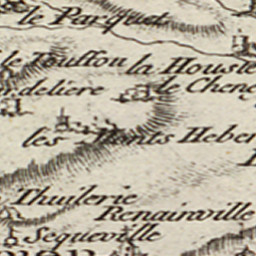 le Parquet
le Touffou
la Housse
deliere
de Chene
les Monts Heber
Thuilerie
Renairoville
Sequeville